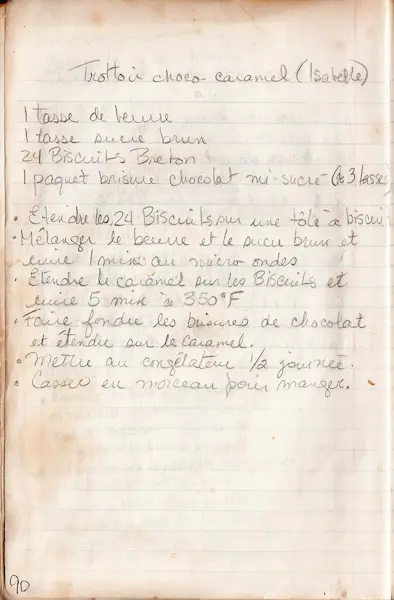 Trottoir choco-caramel (Isabelle)
1 tasse de beurre
1 tasse sucre brun
24 Biscuits Breton
1 paquet brisure chocolat mi-sucré (≈ 3 tasses
• Étendre les 24 Biscuits sur une tôle à biscui
• Mélanger le beurre et le sucre brun et
cuire 1 min au micro ondes
• Étendre le caramel sur les Biscuits et
cuire 5 min à 350°F
• Faire fondre les brisures de chocolat
et étendre sur le caramel.
• Mettre au congélateur 1/2 journée.
• Casser en morceau pour manger.
90